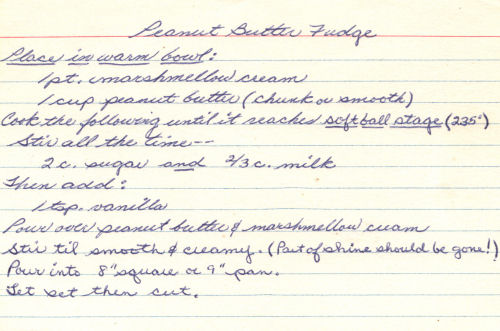 Peanut Butter Fudge
Place in warm bowl:
1pt. marshmellow cream
1 cup peanut butter (chunk or smooth)
Cook the following until it reaches softball stage (235°)
Stir all the time--
2 c. sugar and 2/3 c. milk
Then add:
1 tsp. vanilla
Pour over peanut butter & marshmellow cream
Stir til smooth & creamy. (Part of shine should be gone!)
Pour into 8" square or 9" pan.
Let set then cut.